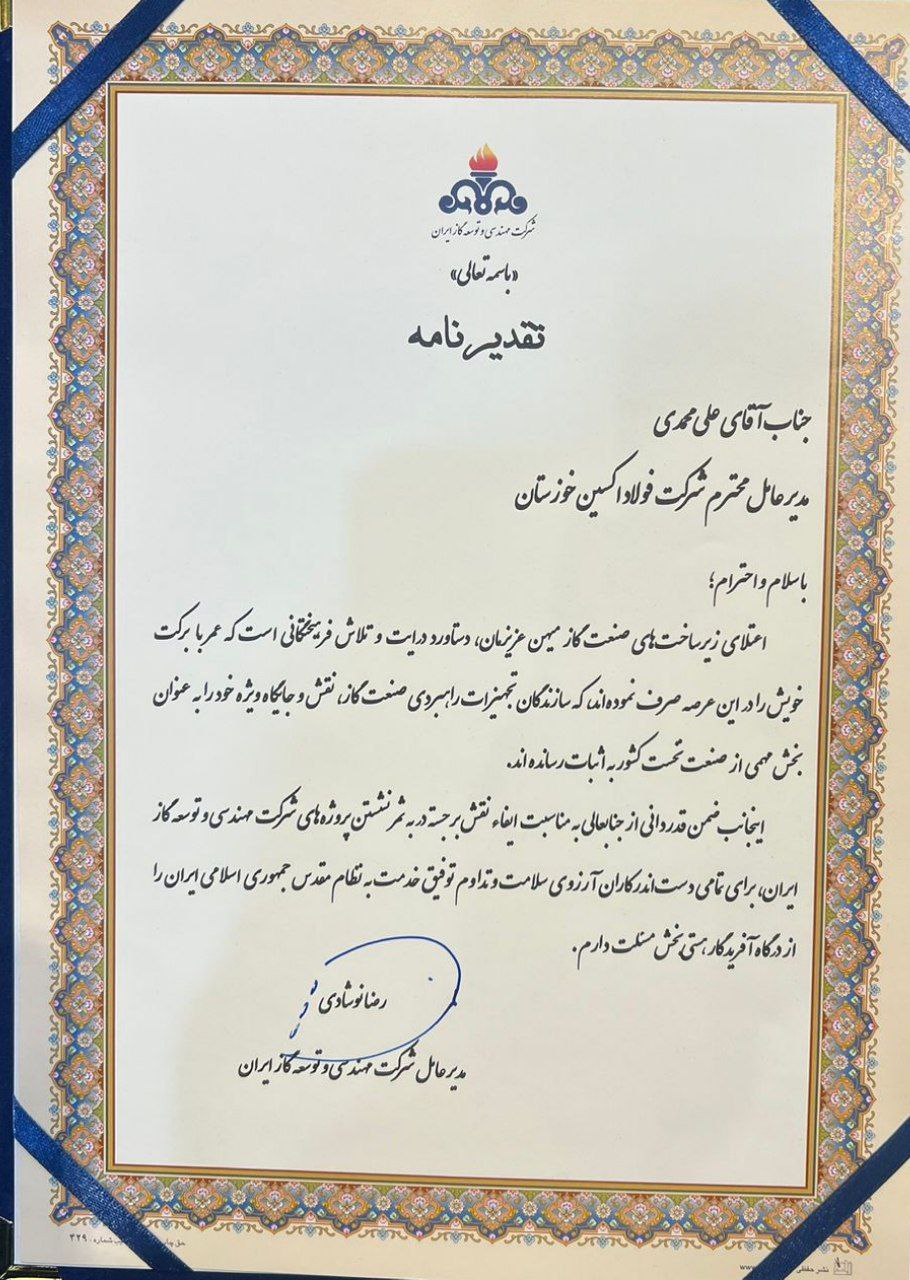 شرکت مهندسی و توسعه گاز ایران
«باسمه تعالی»
تقدیرنامه
جناب آقای علی محمدی
مدیر عامل محترم شرکت فولاد اکسین خوزستان
با سلام و احترام؛
اعتلای زیرساخت‌های صنعت گاز میهن عزیزمان، دستاورد درایت و تلاش فرهیختگانی است که عمر با برکت
خویش را در این عرصه صرف نموده‌اند، که سازندگان تجهیزات راهبردی صنعت گاز، نقش و جایگاه ویژه خود را به عنوان
بخش مهمی از صنعت نحست کشور به اثبات رسانده اند.
اینجانب ضمن قدردانی از جنابعالی به مناسبت ایفاء نقش برجسته در به ثمر نشستن پروژه‌های شرکت مهندسی و توسعه گاز
ایران، برای تمامی دست اندرکاران آرزوی سلامت و تداوم توفیق خدمت به نظام مقدس جمهوری اسلامی ایران را
از درگاه آفریدگار هستی بخش مسئلت دارم.
رضا نوشادی
مدیر عامل شرکت مهندسی و توسعه گاز ایران
حق چاپ
شماره: ۴۲۹
نشر حفظی
www